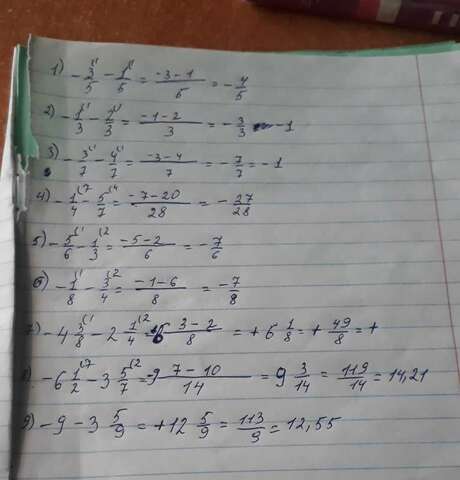 1) -3/5 - 1/5 = (-3-1)/5 = -4/5
2) -1/3 - 2/3 = (-1-2)/3 = -3/3 = -1
3) -3/7 - 4/7 = (-3-4)/7 = -7/7 = -1
4) -1/4 (7 - 5/7 (4 = (-7-20)/28 = -27/28
5) -5/6 (1 - 1/3 (2 = (-5-2)/6 = -7/6
6) -1/8 (1 - 3/4 (2 = (-1-6)/8 = -7/8
7) -4 3/8 (1 - 2 1/4 (2 = 6 (3-2)/8 = +6 1/8 = + 49/8 = +
8) -6 1/2 (7 - 3 5/7 (2 = 9 (7-10)/14 = 9 3/14 = 119/14 = 14,21
9) -9 - 3 5/9 = +12 5/9 = 113/9 = 12,55